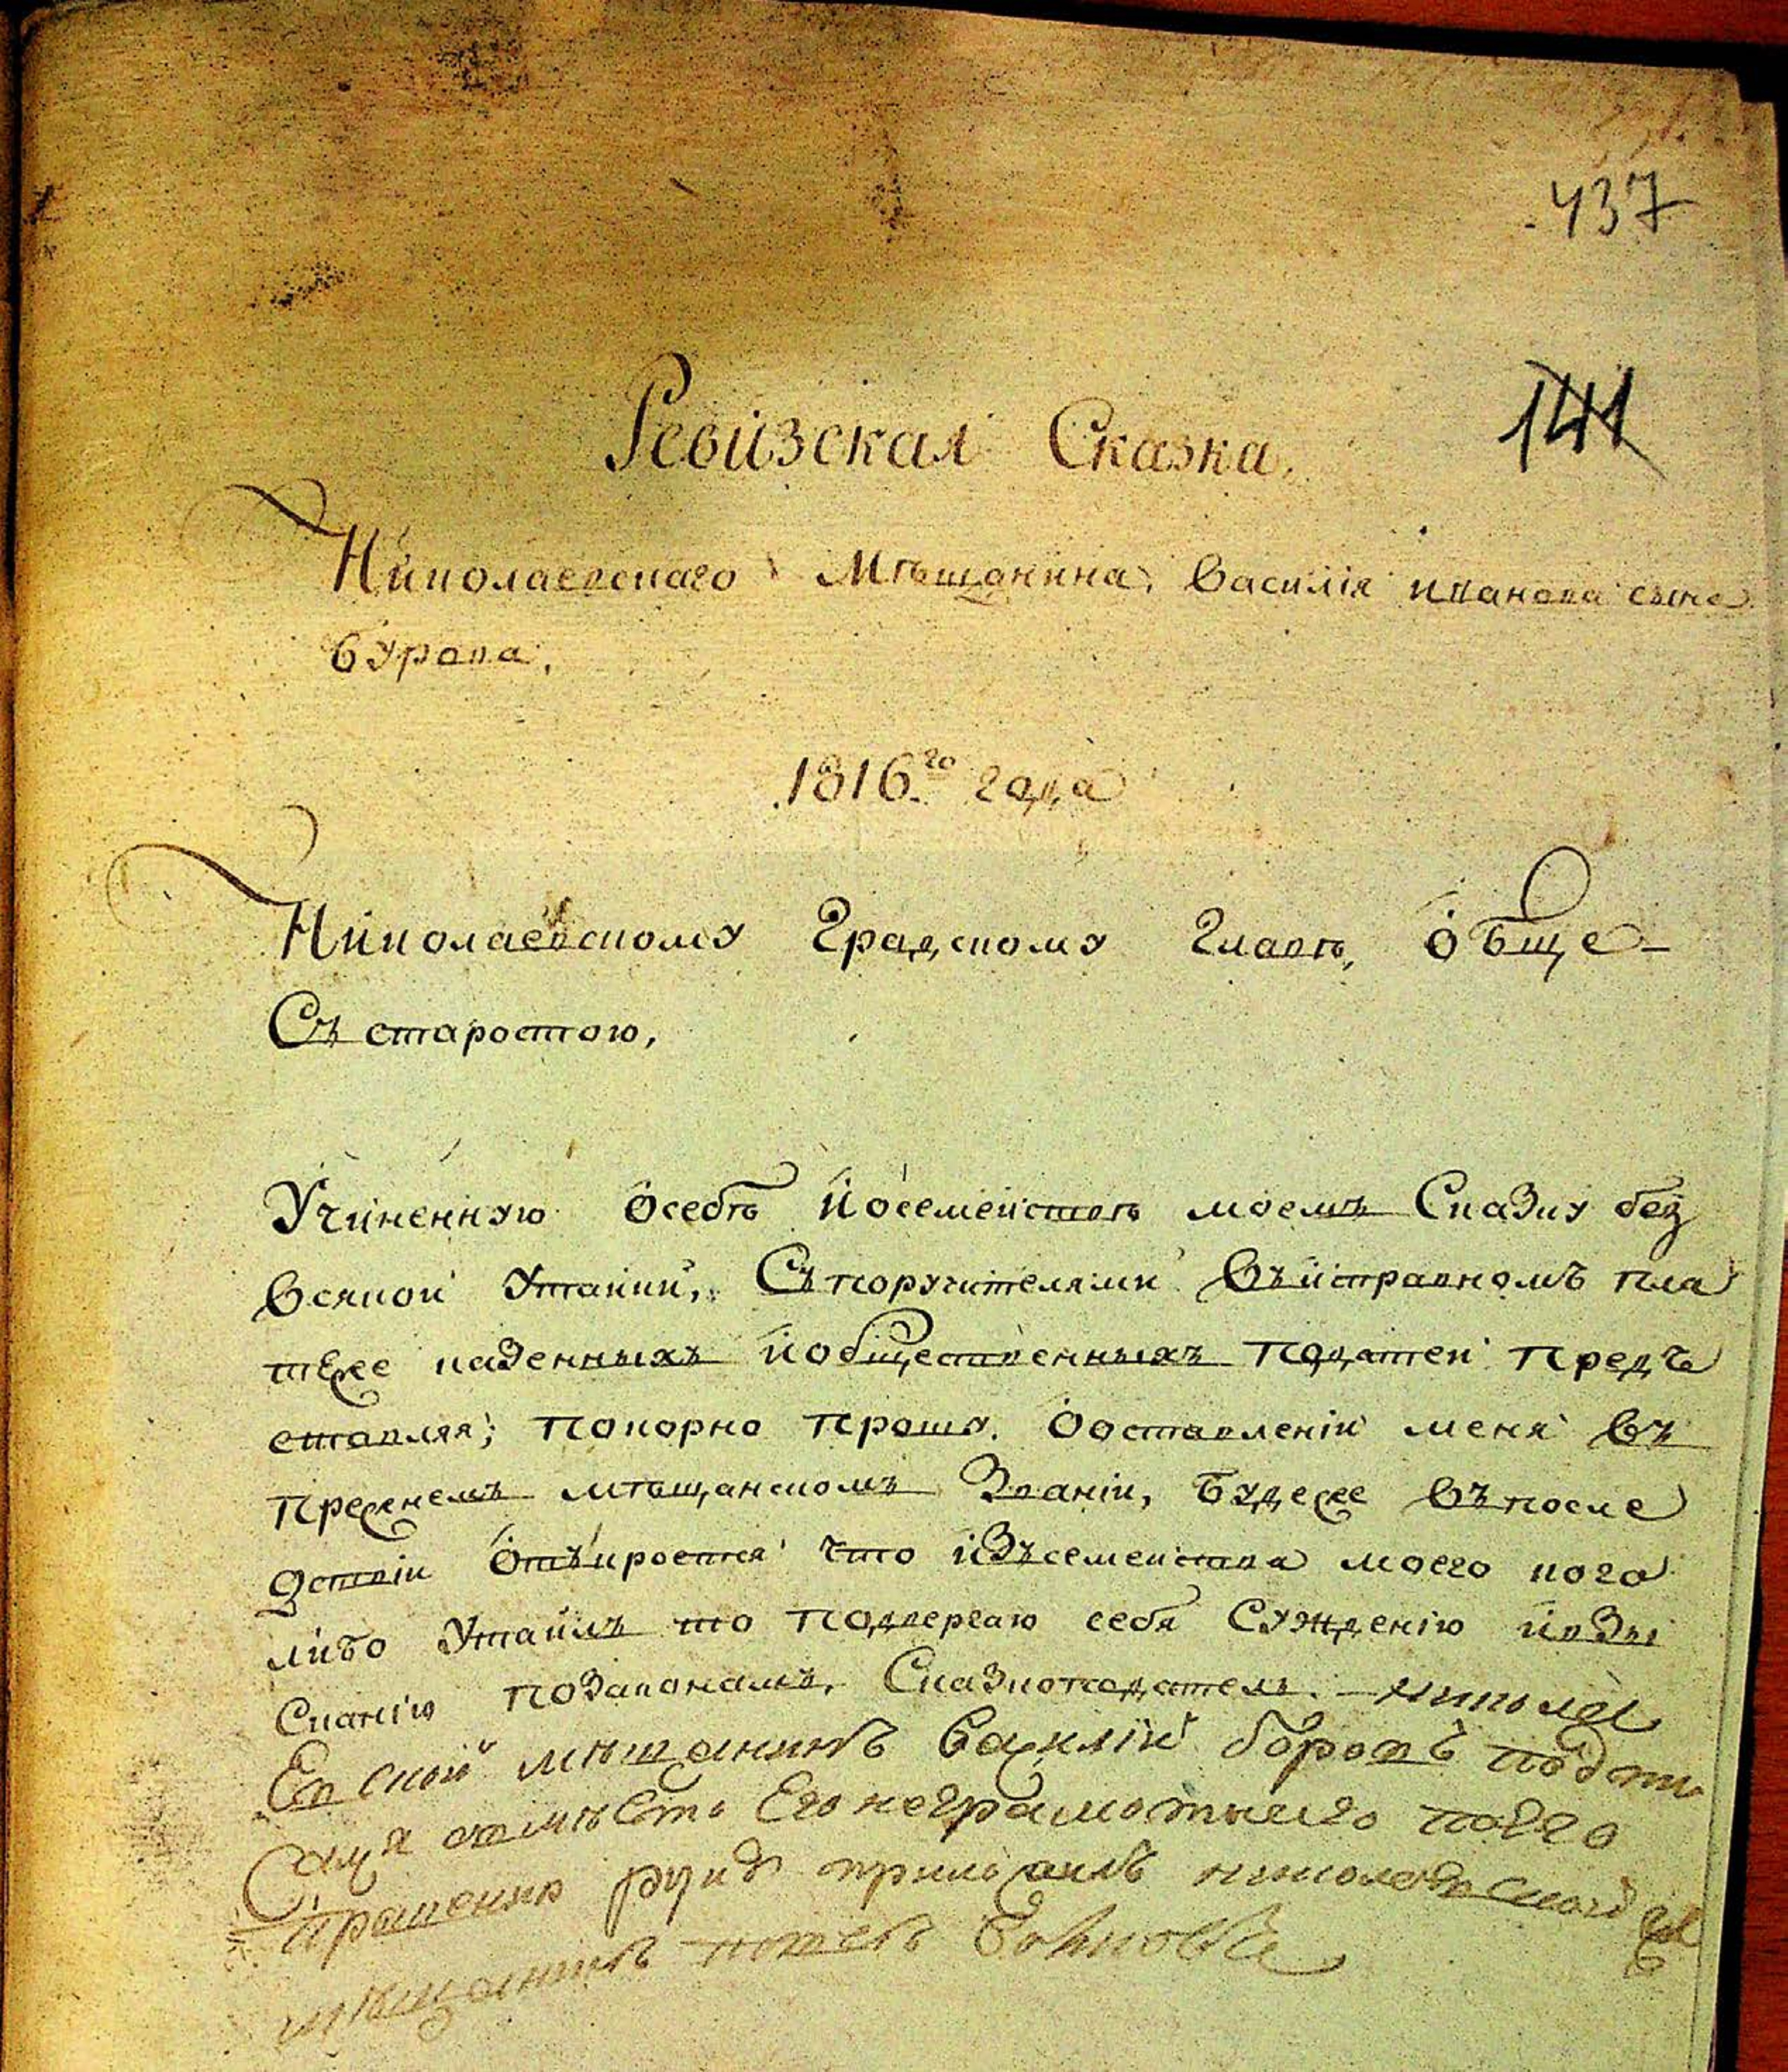 437
141
Ревизская Сказка.
Николаевскаго Мѣщанина, Василія иванова сына
бурова.
1816.го года
Николаевскому Градскому Главѣ, обще-
Съ старостою,
Учиненную осебѣ иосемействѣ моемъ Сказку без
всякой Утайки, Съ поручителями въисправномъ пла
теже казенныхъ иобщественныхъ податей предъ
ставляя; покорно прошу. Ооставленіи меня въ
прежнемъ мѣщанскомъ Званіи, буде же въ после
дствіи откроется что изъсемейства моего кого
либо Утаилъ то подвергаю себя Сужденію и взы
сканію позаконамъ, Сказкоподатель. — Никола
Евской мѣщанинъ Василій буровъ подъ
вместо Его неграмотнаго поего
прошению руку приложилъ николаевской
мѣщанинъ